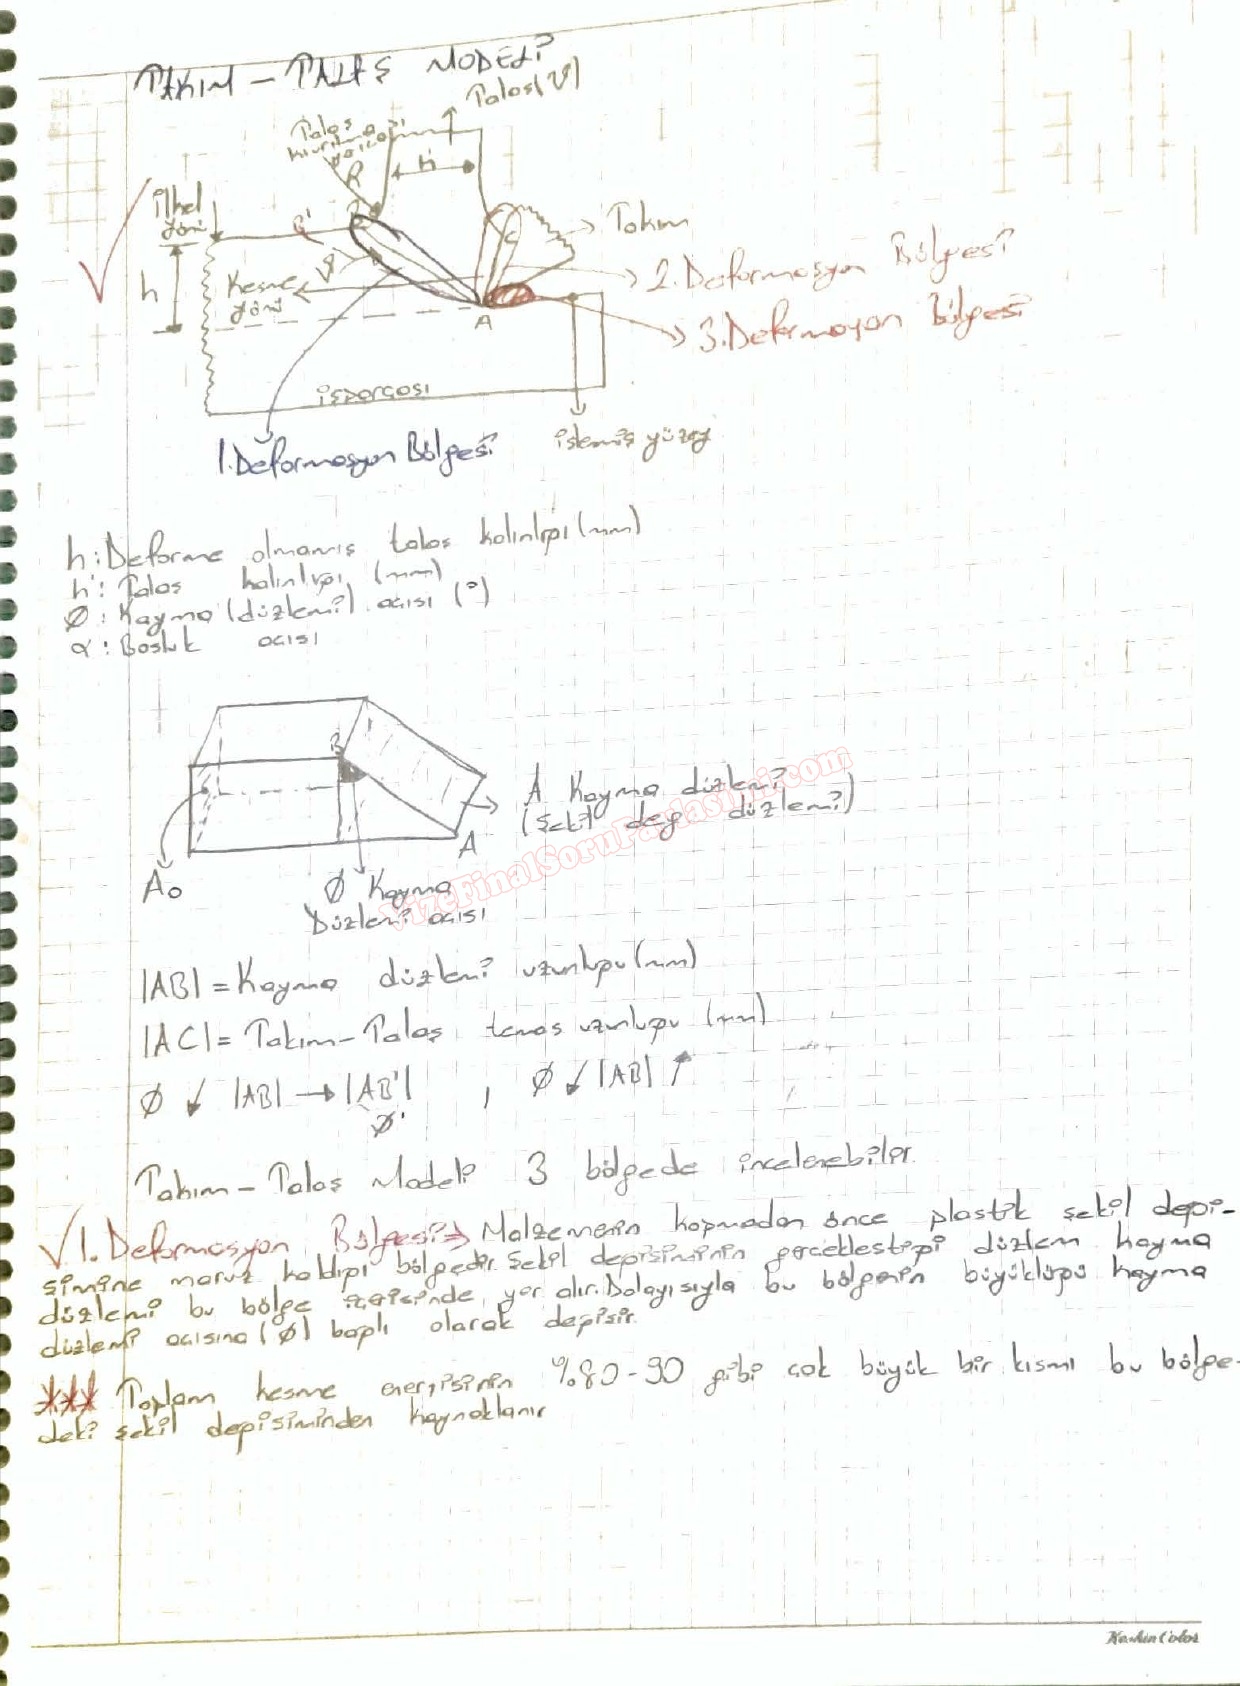 TAKIM – TALAŞ MODELİ
Talaş(V)
Talaş
kıvrılma
R
h'
İlkel
yönü
B'
B
C
Takım
h
Kesme
yönü
Ø
A
2.Deformasyon Bölgesi
3.Deformasyon Bölgesi
işparçası
1.Deformasyon Bölgesi
işlemiş yüzey
h:Deforme olmamış talaş kalınlığı(mm)
h': Talaş kalınlığı (mm)
Ø: Kayma (düzlemi) açısı (°)
α: Boşluk açısı
B
A
A Kayma düzlemi
(şekil değ düzlemi)
A₀
Ø Kayma
Düzlemi açısı
VizeFinalSoruPaylasimi.com
|AB| = Kayma düzlemi uzunluğu(mm)
|AC| = Takım-Talaş temas uzunluğu (mm)
Ø ↓ |AB| → |AB'| , Ø ↓ |AB| ↑
Ø'
Takım-Talaş Modeli 3 bölgede incelenebilir.
√1.Deformasyon Bölgesi⇒ Malzemenin kopmadan önce plastik şekil deği-
şimine maruz kaldığı bölgedir. Şekil değişiminin gerçekleştiği düzlem kayma
düzlemi bu bölge içerisinde yer alır. Dolayısıyla bu bölgenin büyüklüğü kayma
düzlemi açısına (Ø) bağlı olarak değişir.
*** Toplam kesme enerjisinin %80-90 gibi çok büyük bir kısmı bu bölge-
deki şekil değişiminden kaynaklanır